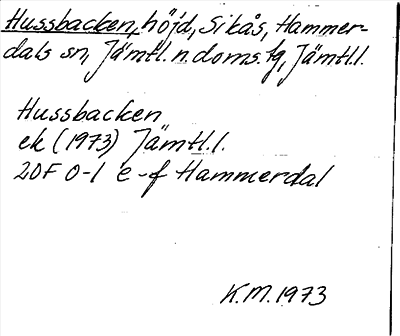 Hussbacken, höjd, Sikås, Hammer-
dals sn, Jämtl. n. doms. tg, Jämtl.l.
Hussbacken
ek (1973) Jämtl.l.
20F 0-1 e-f Hammerdal
K.M. 1973